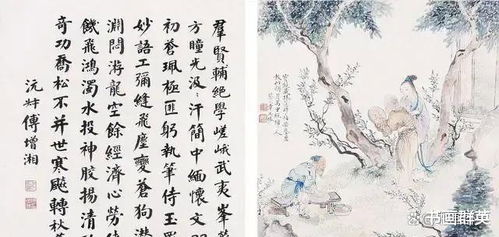 羣賢輔絕學嵯峨武夷峯
方瞳光汲〻汗簡中緬懷文
初登珮極匪躬執筆侍玉
妙語工彌縫飛塵變蒼狗潛
淵問游龍空餘經濟心勞
饑飛鴻濁水投神膠揚清
奇功喬松不并世寒飈轉秋
沅叔傅增湘
书画群英